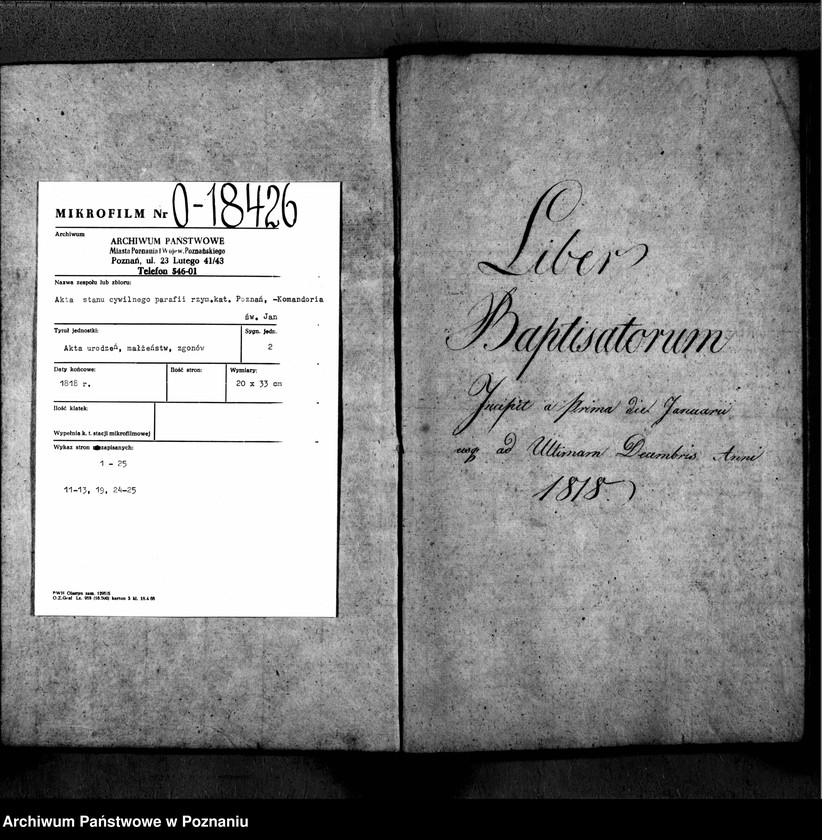 MIKROFILM Nr O-18426
Archiwum
ARCHIWUM PAŃSTWOWE
Miasta Poznania i Wojew. Poznańskiego
Poznań, ul. 23 Lutego 41/43
Telefon 546-01
Nazwa zespołu lub zbioru:
Akta stanu cywilnego parafii rzym.kat. Poznań, -Komandoria
św. Jan
Tytuł jednostki:
Sygn. jedn.
Akta urodzeń, małżeństw, zgonów
2
Daty końcowe:
Ilość stron:
Wymiary:
1818 r.
20 x 33 cm
Ilość klatek:
Wypełnia k. t. stacji mikrofilmowej
Wykaz stron zapisanych:
1 - 25
11-13, 19, 24-25
Liber
Baptisatorum
Incipit a prima die Januarii
usq ad Ultimam Decembris Anni
1818.
Archiwum Państwowe w Poznaniu